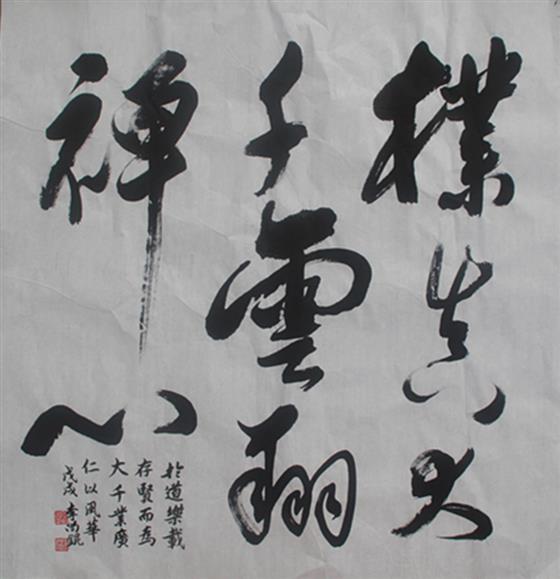 樸真大
千雲翔
禅心
於道樂載
存賢而為
大千業廣
仁以風華
戊戌 李